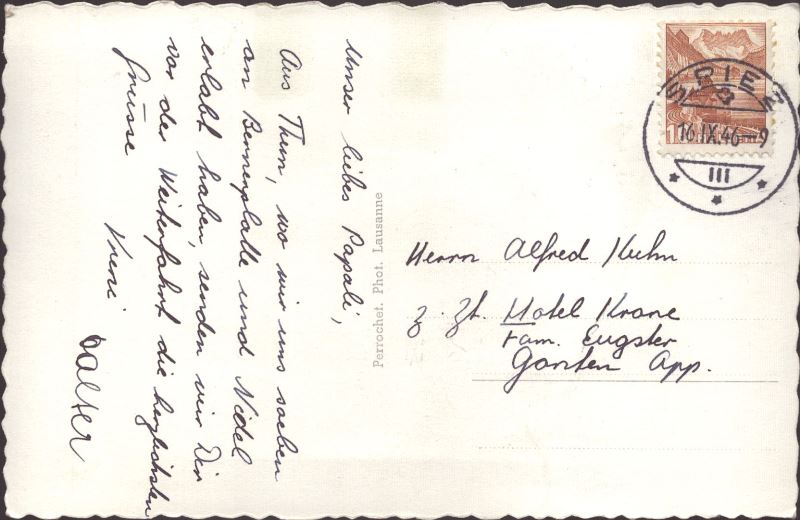 Unser liebes Papali,
Aus Thun, wo wir uns soeben
an Birnenplatte und Nidel
erlabt haben, senden wir Dir
vor der Weiterfahrt die herzlichsten
Grüsse Vreni
Walter
Perrochet. Phot. Lausanne
SPIEZ
16.IX.46–9
III
Herrn Alfred Kuhn
z. Zt. Hotel Krone
Fam. Eugster
Gonten App.